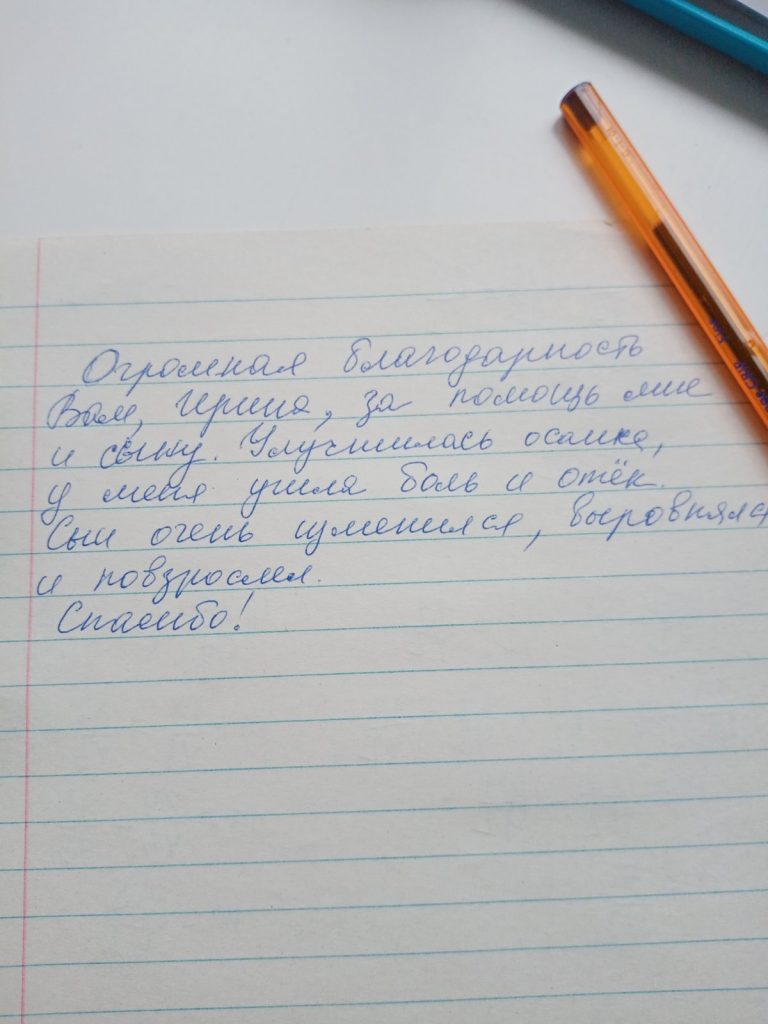 Огромная благодарность
Вам, Ирина, за помощь мне
и сыну. Улучшилась осанка,
у меня ушла боль и отёк.
Сын очень изменился, выровнялся
и повзрослел.
Спасибо!